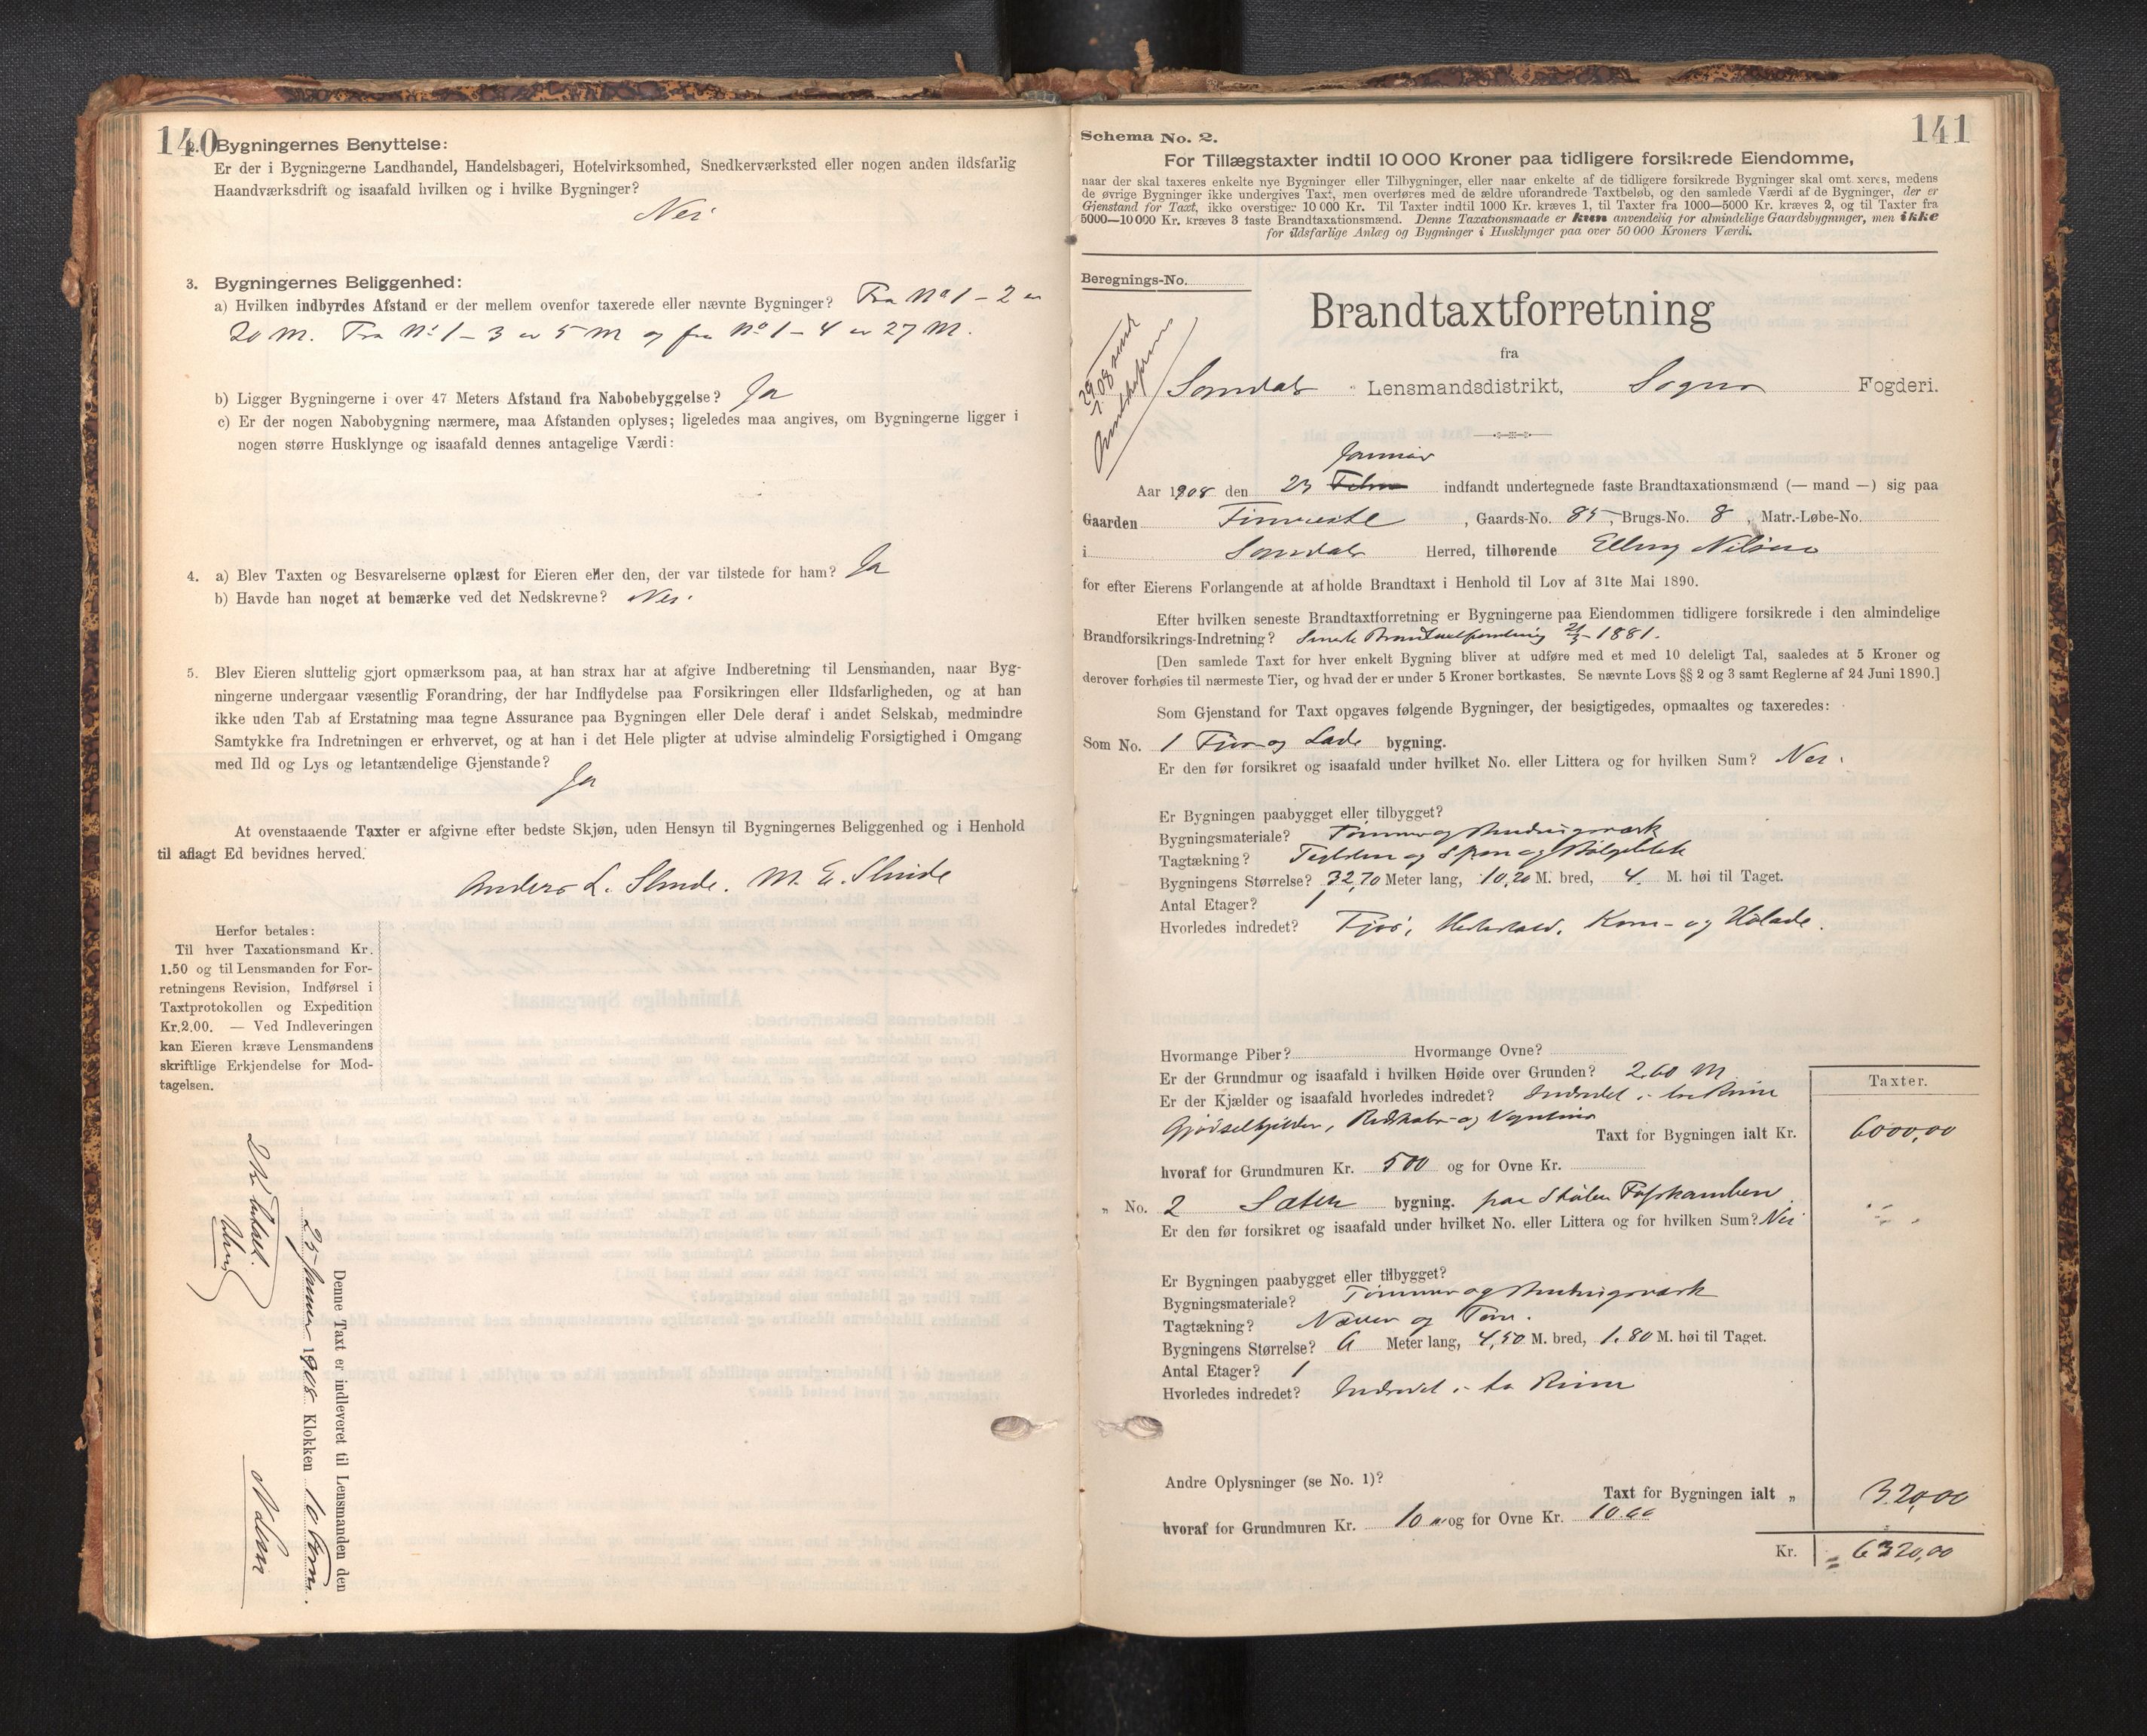 140
2. Bygningernes Benyttelse:
Er der i Bygningerne Landhandel, Handelsbageri, Hotelvirksomhed, Snedkerværksted eller nogen anden ildsfarlig
Haandværksdrift og isaafald hvilken og i hvilke Bygninger?
Nei
3. Bygningernes Beliggenhed:
a) Hvilken indbyrdes Afstand er der mellem ovenfor taxerede eller nævnte Bygninger? Fra No 1 – 2 er
20 M. Fra No 1 – 3 er 5 M og fra No 1 – 4 er 27 M.
b) Ligger Bygningerne i over 47 Meters Afstand fra Nabobebyggelse? Ja
c) Er der nogen Nabobygning nærmere, maa Afstanden oplyses; ligeledes maa angives, om Bygningerne ligger i
nogen større Husklynge og isaafald dennes antagelige Værdi:
4. a) Blev Taxten og Besvarelserne oplæst for Eieren eller den, der var tilstede for ham? Ja
b) Havde han noget at bemærke ved det Nedskrevne? Nei.
5. Blev Eieren sluttelig gjort opmærksom paa, at han strax har at afgive Indberetning til Lensmanden, naar Byg-
ningerne undergaar væsentlig Forandring, der har Indflydelse paa Forsikringen eller Ildsfarligheden, og at han
ikke uden Tab af Erstatning maa tegne Assurance paa Bygningen eller Dele deraf i andet Selskab, medmindre
Samtykke fra Indretningen er erhvervet, og at han i det Hele pligter at udvise almindelig Forsigtighed i Omgang
med Ild og Lys og letantændelige Gjenstande?
Ja
At ovenstaaende Taxter er afgivne efter bedste Skjøn, uden Hensyn til Bygningernes Beliggenhed og i Henhold
til aflagt Ed bevidnes herved.
Anders L. Slinde. M. E. Slinde
Herfor betales:
Til hver Taxationsmand Kr.
1.50 og til Lensmanden for For-
retningens Revision, Indførsel i
Taxtprotokollen og Expedition
Kr. 2.00. — Ved Indleveringen
kan Eieren kræve Lensmandens
skriftlige Erkjendelse for Mod-
tagelsen.
Denne Taxt er indleveret til Lensmanden den
25 Januar 1908 Klokken 10 Form.
141
Schema No. 2.
For Tillægstaxter indtil 10 000 Kroner paa tidligere forsikrede Eiendomme,
naar der skal taxeres enkelte nye Bygninger eller Tilbygninger, eller naar enkelte af de tidligere forsikrede Bygninger skal omtaxeres, medens
de øvrige Bygninger ikke undergives Taxt, men overføres med de ældre uforandrede Taxtbeløb, og den samlede Værdi af de Bygninger, der er
Gjenstand for Taxt, ikke overstiger 10 000 Kr. Til Taxter indtil 1000 Kr. kræves 1, til Taxter fra 1000—5000 Kr. kræves 2, og til Taxter fra
5000—10 000 Kr. kræves 3 faste Brandtaxationsmænd. Denne Taxationsmaade er kun anvendelig for almindelige Gaardsbygninger, men ikke
for ildsfarlige Anlæg og Bygninger i Husklynger paa over 50 000 Kroners Værdi.
Beregnings-No.
Brandtaxtforretning
fra
Sogndals Lensmandsdistrikt, Sogns Fogderi.
Januar
Aar 1908 den 23 indfandt undertegnede faste Brandtaxationsmænd (— mand —) sig paa
Gaarden , Gaards-No. 85, Brugs-No. 8, Matr.-Løbe-No.
i Sogndals Herred, tilhørende Elling Nilsen
for efter Eierens Forlangende at afholde Brandtaxt i Henhold til Lov af 31te Mai 1890.
Efter hvilken seneste Brandtaxtforretning er Bygningerne paa Eiendommen tidligere forsikrede i den almindelige
Brandforsikrings-Indretning? Seneste Brandtaxtforretning 21/3 – 1881.
[Den samlede Taxt for hver enkelt Bygning bliver at udføre med et med 10 deleligt Tal, saaledes at 5 Kroner og
derover forhøies til nærmeste Tier, og hvad der er under 5 Kroner bortkastes. Se nævnte Lovs §§ 2 og 3 samt Reglerne af 24 Juni 1890.]
Som Gjenstand for Taxt opgaves følgende Bygninger, der besigtigedes, opmaaltes og taxeredes:
Som No. 1 Fjøs og Lade bygning.
Er den før forsikret og isaafald under hvilket No. eller Littera og for hvilken Sum? Nei.
Er Bygningen paabygget eller tilbygget?
Bygningsmateriale? Tømmer og Bindingsværk
Tagtækning? og Spon og Bølgeblik
Bygningens Størrelse? 32,70 Meter lang, 10,20 M. bred, 4 M. høi til Taget.
Antal Etager? 1
Hvorledes indret? Fjøs, Hestestald, Korn- og Hølade.
Hvormange Piber? Hvormange Ovne?
Er der Grundmur og isaafald i hvilken Høide over Grunden? 2.60 M
Er der Kjælder og isaafald hvorledes indredet? Indredet i tre Rum
Gjødselkjelder, Redskabs- og
Taxter.
Taxt for Bygningen ialt Kr. 6000,00
hvoraf for Grundmuren Kr. 500 og for Ovne Kr.
„ No. 2 Sæter bygning. paa Stølen
Er den før forsikret og isaafald under hvilket No. eller Littera og for hvilken Sum? Nei
Er Bygningen paabygget eller tilbygget?
Bygningsmateriale? Tømmer og Bindingsværk
Tagtækning? Næver og Torv.
Bygningens Størrelse? 6 Meter lang, 4,50 M. bred, 1.80 M. høi til Taget.
Antal Etager? 1
Hvorledes indredet? Indredet i to Rum
Andre Oplysninger (se No. 1)?
Taxt for Bygningen ialt „ 320,00
hvoraf for Grundmuren Kr. 10 og for Ovne Kr. 10.00
Kr. 6320,00